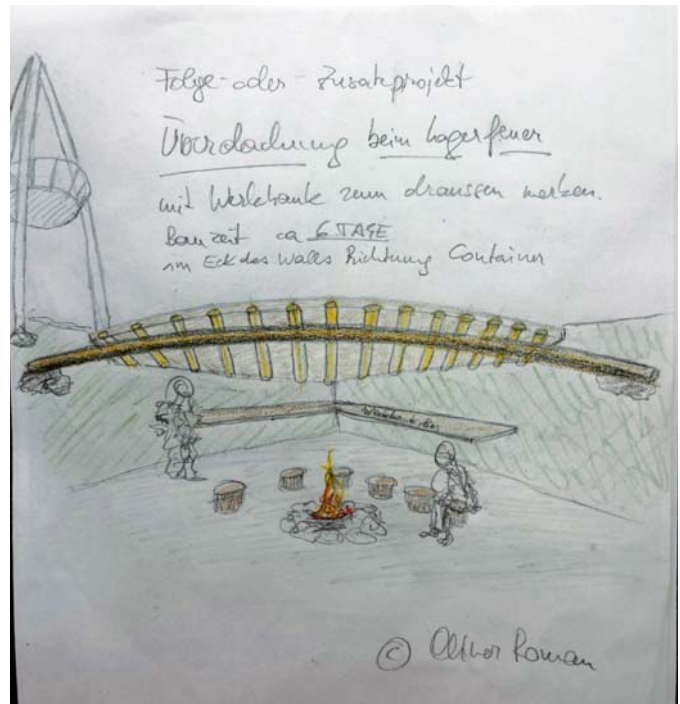 Folge- oder - Zusatzprojekt
Überdachung beim Lagerfeuer
mit Werkbank zum draussen werken.
Bauzeit ca 6 TAGE
im Eck des Walls Richtung Container
© Roman